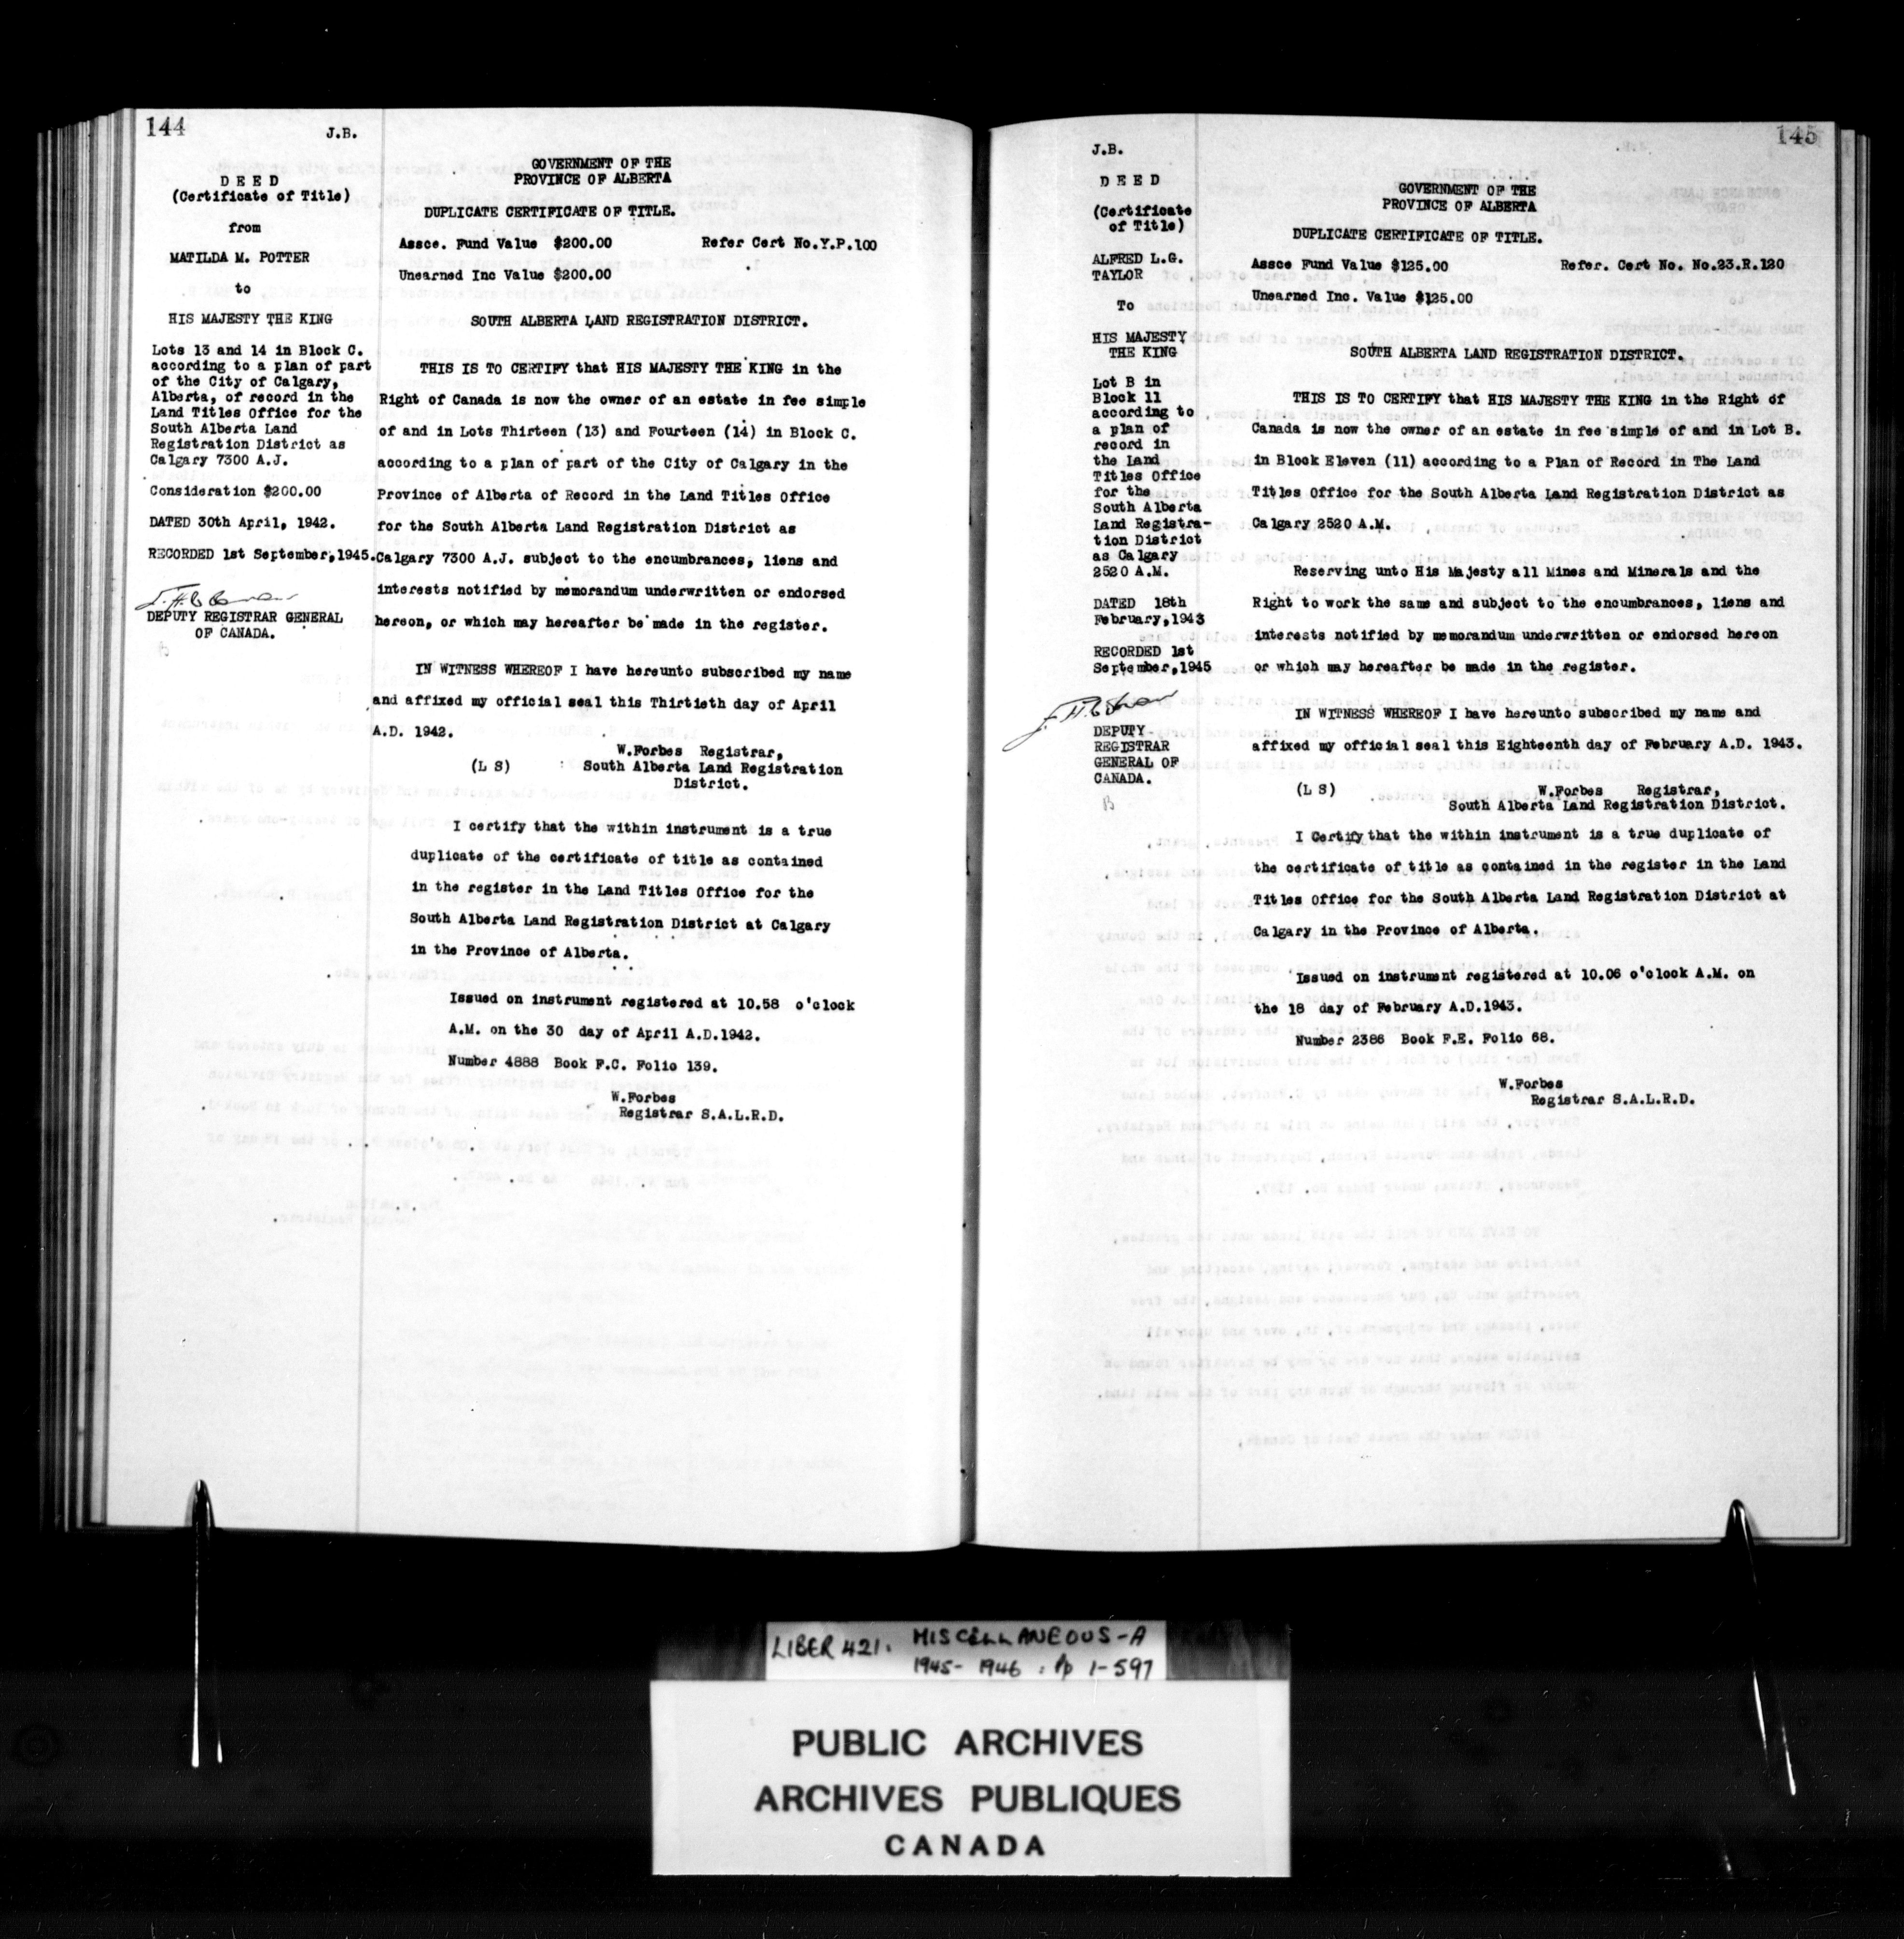 144
J.B.
D E E D
(Certificate of Title)
from
MATILDA M. POTTER
to
HIS MAJESTY THE KING
Lots 13 and 14 in Block C.
according to a plan of part
of the City of Calgary,
Alberta, of record in the
Land Titles Office for the
South Alberta Land
Registration District as
Calgary 7300 A.J.
Consideration $200.00
DATED 30th April, 1942.
RECORDED 1st September,1945.
DEPUTY REGISTRAR GENERAL
OF CANADA.
GOVERNMENT OF THE
PROVINCE OF ALBERTA
DUPLICATE CERTIFICATE OF TITLE.
Assce. Fund Value $200.00 Refer Cert No.Y.P.100
Unearned Inc Value $200.00
SOUTH ALBERTA LAND REGISTRATION DISTRICT.
THIS IS TO CERTIFY that HIS MAJESTY THE KING in the
Right of Canada is now the owner of an estate in fee simple
of and in Lots Thirteen (13) and Fourteen (14) in Block C.
according to a plan of part of the City of Calgary in the
Province of Alberta of Record in the Land Titles Office
for the South Alberta Land Registration District as
Calgary 7300 A.J. subject to the encumbrances, liens and
interests notified by memorandum underwritten or endorsed
hereon, or which may hereafter be made in the register.
IN WITNESS WHEREOF I have hereunto subscribed my name
and affixed my official seal this Thirtieth day of April
A.D. 1942.
W.Forbes Registrar,
(L S) South Alberta Land Registration
District.
I certify that the within instrument is a true
duplicate of the certificate of title as contained
in the register in the Land Titles Office for the
South Alberta Land Registration District at Calgary
in the Province of Alberta.
Issued on instrument registered at 10.58 o'clock
A.M. on the 30 day of April A.D.1942.
Number 4888 Book F.C. Folio 139.
W.Forbes
Registrar S.A.L.R.D.
145
J.B.
D E E D
(Certificate
of Title)
ALFRED L.G.
TAYLOR
To
HIS MAJESTY
THE KING
Lot B in
Block 11
according to
a plan of
record in
the Land
Titles Office
for the
South Alberta
Land Registra-
tion District
as Calgary
2520 A.M.
DATED 18th
February,1943
RECORDED 1st
September,1945
DEPUTY
REGISTRAR
GENERAL OF
CANADA.
GOVERNMENT OF THE
PROVINCE OF ALBERTA
DUPLICATE CERTIFICATE OF TITLE.
Assce Fund Value $125.00 Refer. Cert No. No.23.R.120
Unearned Inc. Value $125.00
SOUTH ALBERTA LAND REGISTRATION DISTRICT.
THIS IS TO CERTIFY that HIS MAJESTY THE KING in the Right of
Canada is now the owner of an estate in fee simple of and in Lot B.
in Block Eleven (11) according to a Plan of Record in The Land
Titles Office for the South Alberta Land Registration District as
Calgary 2520 A.M.
Reserving unto His Majesty all Mines and Minerals and the
Right to work the same and subject to the encumbrances, liens and
interests notified by memorandum underwritten or endorsed hereon
or which may hereafter be made in the register.
IN WITNESS WHEREOF I have hereunto subscribed my name and
affixed my official seal this Eighteenth day of February A.D. 1943.
(L S) W.Forbes Registrar,
South Alberta Land Registration District.
I Certify that the within instrument is a true duplicate of
the certificate of title as contained in the register in the Land
Titles Office for the South Alberta Land Registration District at
Calgary in the Province of Alberta.
Issued on instrument registered at 10.06 o'clock A.M. on
the 18 day of February A.D.1943.
Number 2386 Book F.E. Folio 68.
W.Forbes
Registrar S.A.L.R.D.
LIBER 421. MISCELLANEOUS-A
1945-1946 : Pp 1-597
PUBLIC ARCHIVES
ARCHIVES PUBLIQUES
CANADA